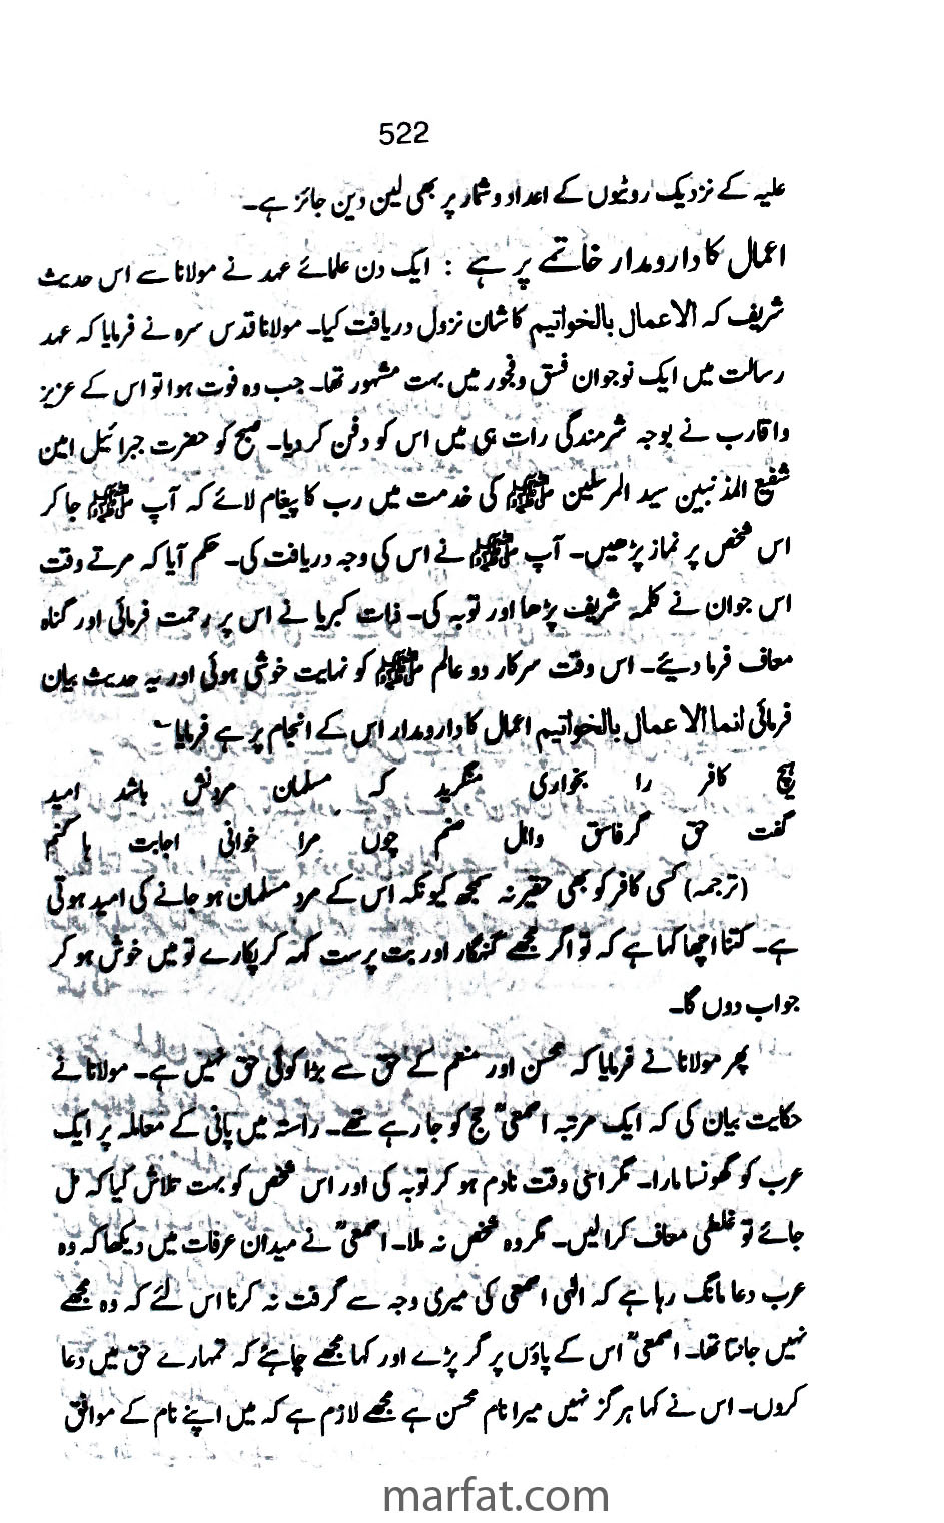 522
علیہ کے نزدیک روٹیوں کے اعداد و شمار پر بھی لین دین جائز ہے۔
اعمال کا دارومدار خاتمے پر ہے : ایک دن علمائے عہد نے مولانا سے اس حدیث
شریف کہ الاعمال بالخواتیم کا شان نزول دریافت کیا۔ مولانا قدس سرہ نے فرمایا کہ عہد
رسالت میں ایک نوجوان فسق و فجور میں بہت مشہور تھا۔ جب وہ فوت ہوا تو اس کے عزیز
واقارب نے بوجہ شرمندگی رات ہی میں اس کو دفن کر دیا۔ صبح کو حضرت جبرائیل امین
شفیع المذنبین سید المرسلین ﷺ کی خدمت میں رب کا پیغام لائے کہ آپ ﷺ جا کر
اس شخص پر نماز پڑھیں۔ آپ ﷺ نے اس کی وجہ دریافت کی۔ حکم آیا کہ مرتے وقت
اس جوان نے کلمہ شریف پڑھا اور توبہ کی۔ ذات کبریا نے اس پر رحمت فرمائی اور گناہ
معاف فرما دیئے۔ اس وقت سرکار دو عالم ﷺ کو نہایت خوشی ہوئی اور یہ حدیث بیان
فرمائی انما الاعمال بالخواتیم اعمال کا دارومدار اس کے انجام پر ہے فرمایا ؎
ہیچ کافر را بخواری منگرید کہ مسلمان مردنش باشد امید
گفت حق گر فاسق واہل صنم چوں مرا خوانی اجابت ہا کنم
(ترجمہ) کسی کافر کو بھی حقیر نہ سمجھ کیونکہ اس کے مرد مسلمان ہو جانے کی امید ہوتی
ہے۔ کتنا اچھا کہا ہے کہ تو اگر مجھے گنہگار اور بت پرست کہہ کر پکارے تو میں خوش ہو کر
جواب دوں گا۔
پھر مولانا نے فرمایا کہ محسن اور منعم کے حق سے بڑا کوئی حق نہیں ہے۔ مولانا نے
حکایت بیان کی کہ ایک مرتبہ اصمعیؒ حج کو جا رہے تھے۔ راستہ میں پانی کے معاملہ پر ایک
عرب کو گھونسا مارا۔ مگر اسی وقت نادم ہو کر توبہ کی اور اس شخص کو بہت تلاش کیا کہ مل
جائے تو غلطی معاف کرالیں۔ مگر وہ شخص نہ ملا۔ اصمعیؒ نے میدان عرفات میں دیکھا کہ وہ
عرب دعا مانگ رہا ہے کہ الٰہی اصمعی کی میری وجہ سے گرفت نہ کرنا اس لئے کہ وہ مجھے
نہیں جانتا تھا۔ اصمعیؒ اس کے پاؤں پر گر پڑے اور کہا مجھے چاہئے کہ تمہارے حق میں دعا
کروں۔ اس نے کہا ہرگز نہیں میرا نام محسن ہے مجھے لازم ہے کہ میں اپنے نام کے موافق
marfat.com